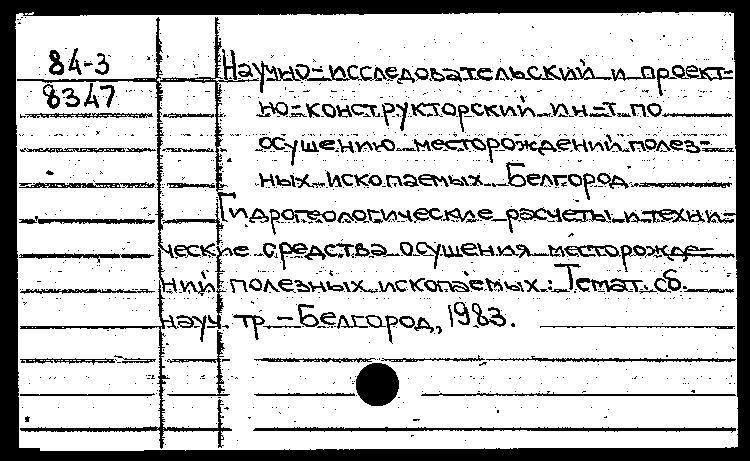 84-3
8347
Научно-исследовательский и проект-
но-конструкторский ин-т по
осушению месторождений полез-
ных ископаемых. Белгород
Гидрогеологические расчеты и техни-
ческие средства осушения месторожде-
ний полезных ископаемых: Темат. сб.
науч. тр. - Белгород, 1983.